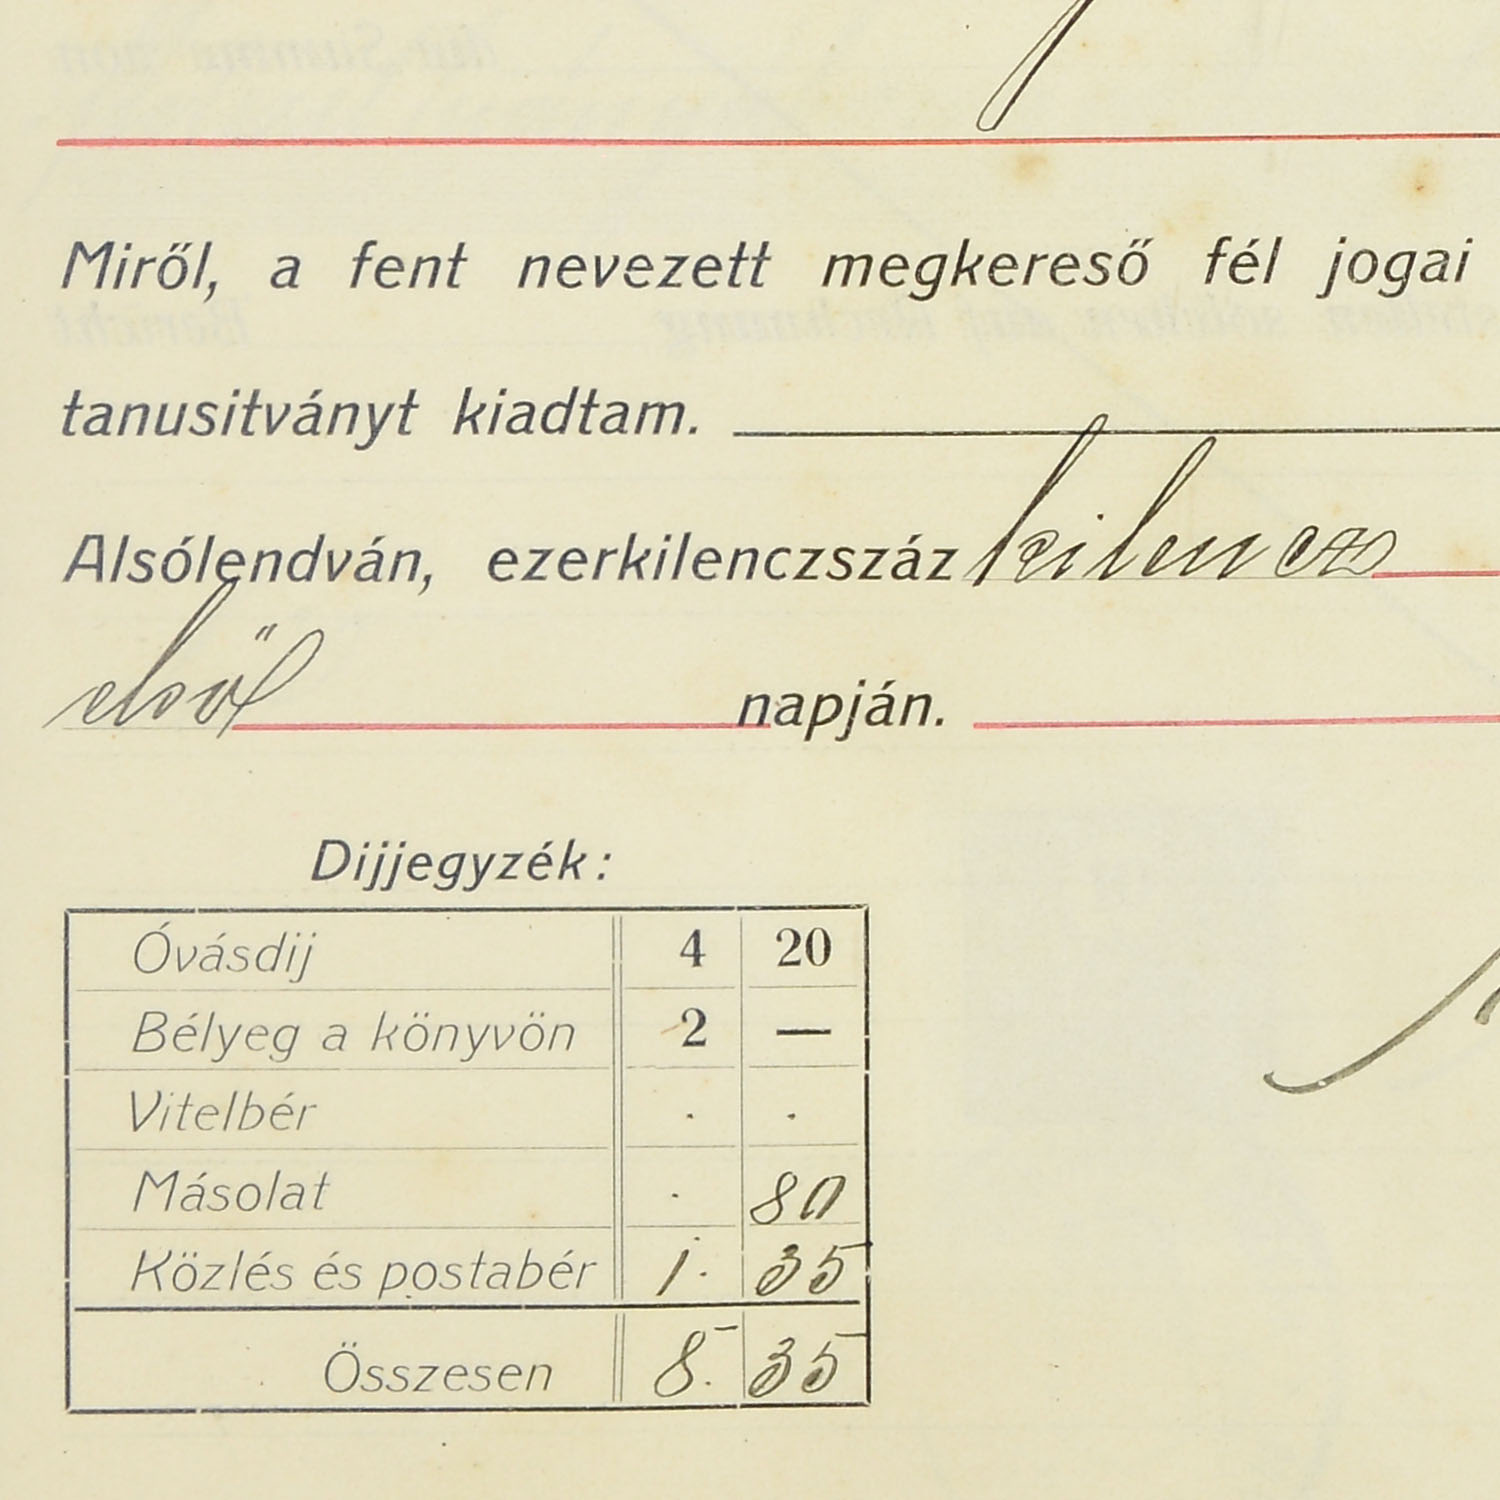 Miről, a fent nevezett megkereső fél jogai
tanusitványt kiadtam.
Alsólendván, ezerkilenczszáz kilencz
első napján.
Dijjegyzék:
Óvásdij 4 20
Bélyeg a könyvön 2 —
Vitelbér . .
Másolat . 80
Közlés és postabér 1. 35
Összesen 8. 35